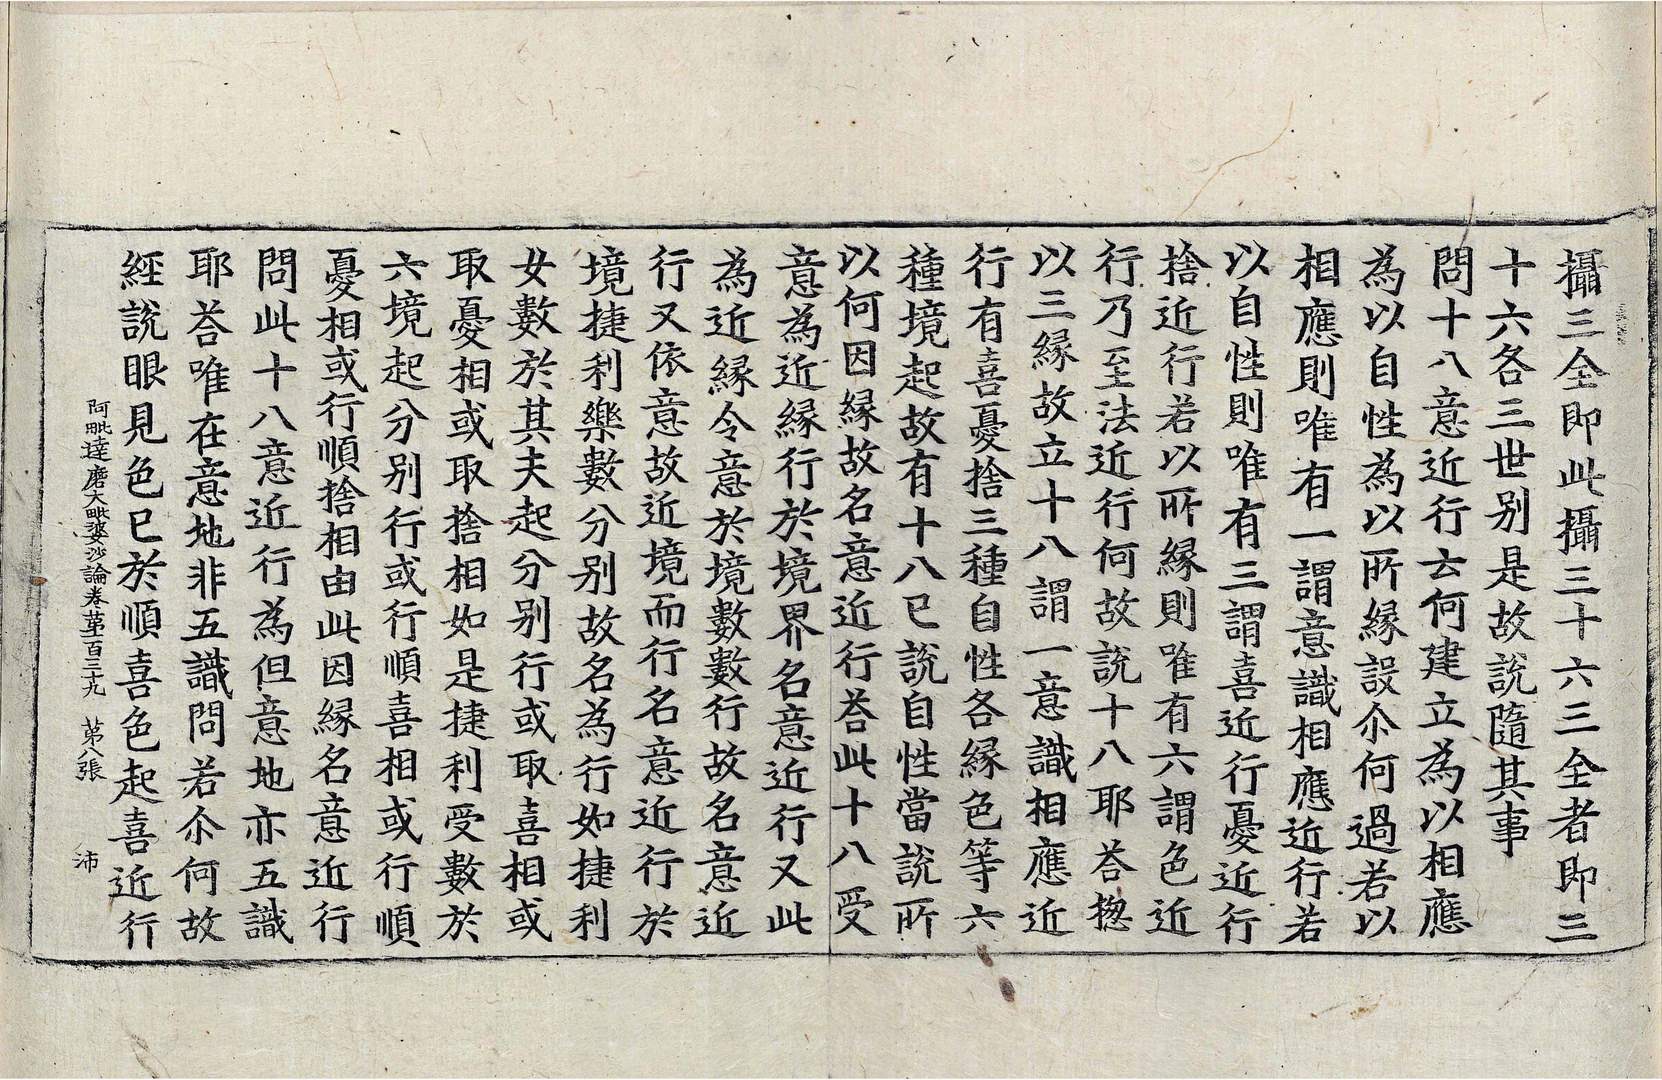 攝三全即此攝三十六三全者即三
十六各三世別是故說隨其事
問十八意近行云何建立為以相應
為以自性為以所緣設尒何過若以
相應則唯有一謂意識相應近行若
以自性則唯有三謂喜近行憂近行
捨近行若以所緣則唯有六謂色近
行乃至法近行何故說十八耶荅揔
以三緣故立十八謂一意識相應近
行有喜憂捨三種自性各緣色等六
種境起故有十八已說自性當說所
以何因緣故名意近行荅此十八受
意為近緣行於境界名意近行又此
為近緣令意於境數數行故名意近
行又依意故近境而行名意近行於
境捷利樂數分別故名為行如捷利
女數於其夫起分別行或取喜相或
取憂相或取捨相如是捷利受數於
六境起分別行或行順喜相或行順
憂相或行順捨相由此因緣名意近行
問此十八意近行為但意地亦五識
耶荅唯在意地非五識問若尒何故
經說眼見色已於順喜色起喜近行
阿毗達磨大毗婆沙論卷第一百三十九 第八張 沛